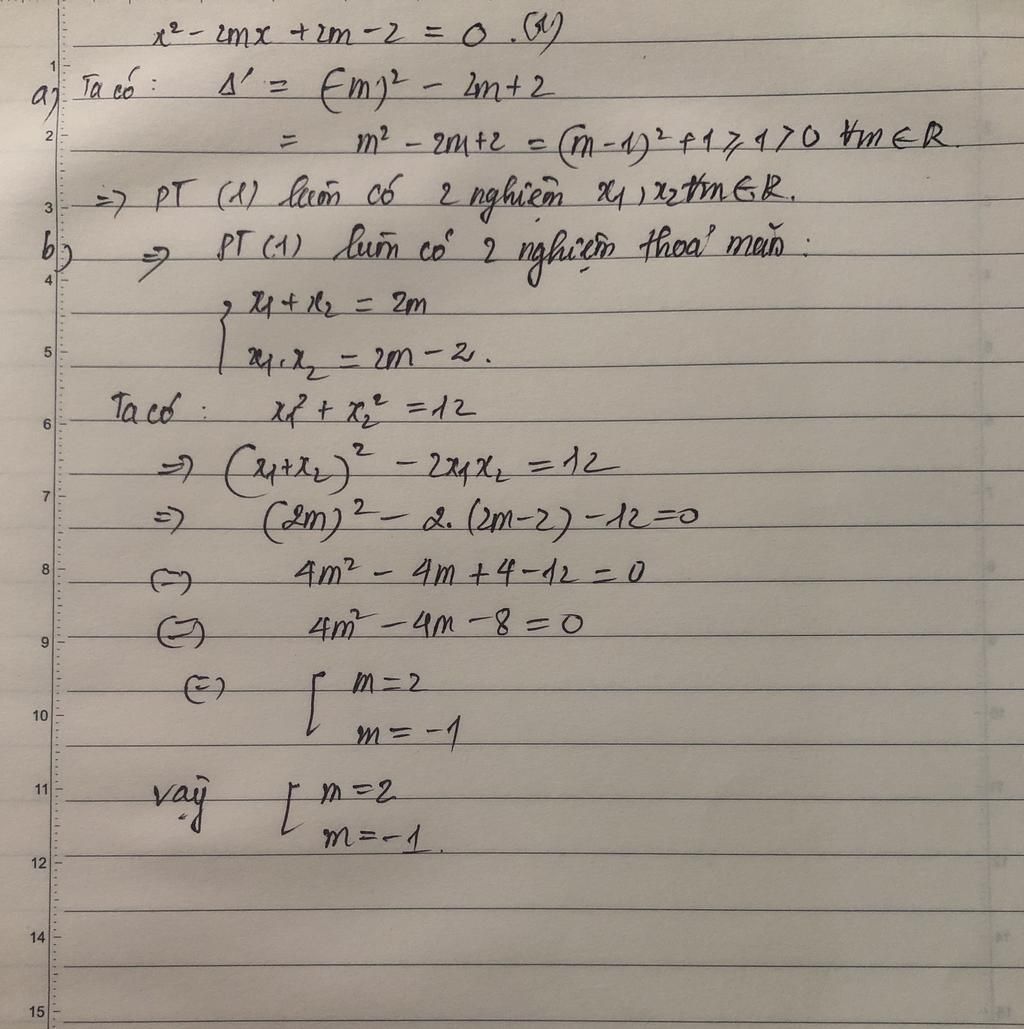 x² - 2mx + 2m - 2 = 0. (1)
a) Ta có: Δ' = (-m)² - 2m + 2
= m² - 2m + 2 = (m - 1)² + 1 ⩾ 1 > 0 ∀m ∈ R.
=> PT (1) luôn có 2 nghiệm x₁, x₂ ∀m ∈ R.
b) => PT (1) luôn có 2 nghiệm thoả mãn:
{ x₁ + x₂ = 2m
x₁.x₂ = 2m - 2.
Ta có: x₁² + x₂² = 12
=> (x₁ + x₂)² - 2x₁x₂ = 12
=> (2m)² - 2.(2m - 2) - 12 = 0
<=> 4m² - 4m + 4 - 12 = 0
<=> 4m² - 4m - 8 = 0
<=> [ m = 2
m = -1
Vậy [ m = 2
m = -1.
1
2
3
4
5
6
7
8
9
10
11
12
14
15